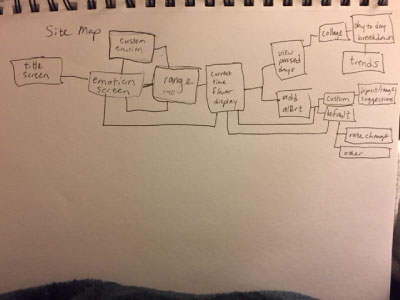 Site Map
title
screen
custom
emotion
emotion
screen
range
1-10
current
time
flower
display
view
passed
days
add
alert
collage
day to day
breakdown
trends
custom
default
suggestions
rate change
other